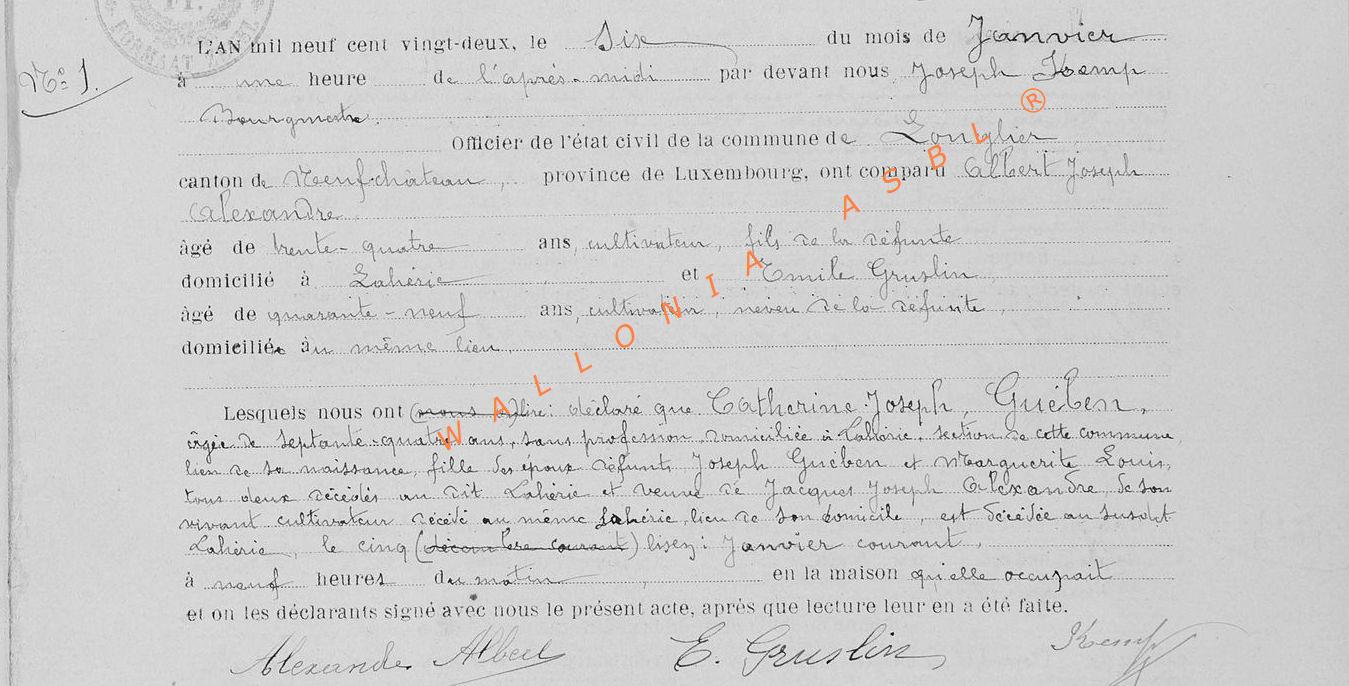 L'AN mil neuf cent vingt-deux, le Six du mois de Janvier
N° 1.
à une heure de l'après-midi par devant nous Joseph Kemp
Bourgmestre.
Officier de l'état civil de la commune de Longlier
canton de Neufchâteau, province de Luxembourg, ont comparu Albert Joseph
Alexandre
âgé de trente-quatre ans, cultivateur, fils de la défunte
domicilié à Lahérie et Emile Gruslin
âgé de quarante-neuf ans, cultivateur, neveu de la défunte,
domiciliés au même lieu,
Lesquels nous ont (nous ) lire: déclaré que Catherine Joseph, Guében,
âgée de septante-quatre ans, sans profession, domiciliée à Lahérie, section de cette commune,
lieu de sa naissance, fille des époux défunts Joseph Guében et Marguerite Louis,
tous deux décédés au dit Lahérie et veuve de Jacques Joseph Alexandre, de son
vivant cultivateur décédé au même Lahérie, lieu de son domicile, est décédée au susdit
Lahérie, le cinq (décembre courant) lisez: Janvier courant,
à neuf heures du matin, en la maison qu'elle occupait
et on les déclarants signé avec nous le présent acte, après que lecture leur en a été faite.
Alexandre Albert E. Gruslin Kemp
WALLONIA ASBL ®